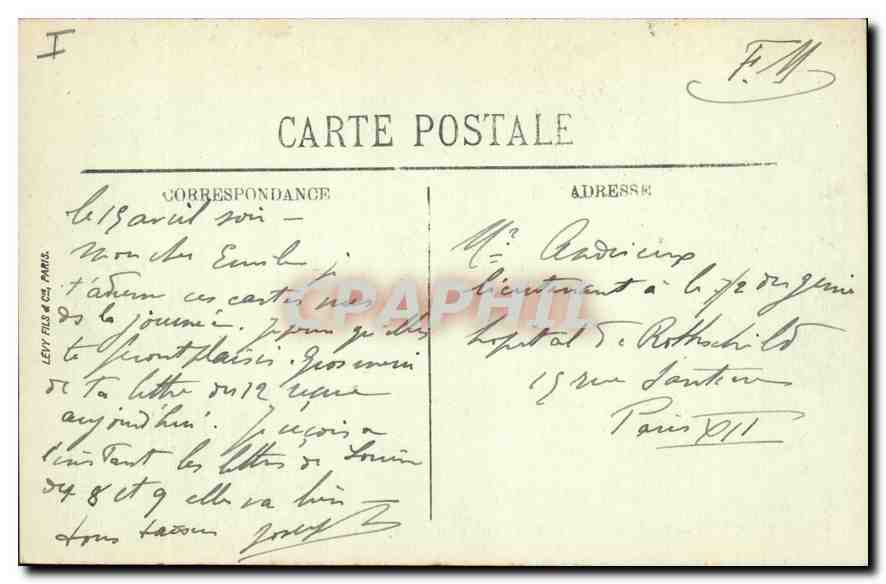 I
F.M
CARTE POSTALE
CORRESPONDANCE
ADRESSE
LEVY FILS & Cie, PARIS.
le 15 avril soir -
Mon cher Emile je
t'adresse ces cartes
de la journée. J'espère qu'elles
te feront plaisir. Gros merci
de ta lettre du 12 reçue
aujourd'hui. Je reçois à
l'instant les lettres de Louise
des 8 et 9 elle va bien
Tous
Joseph
Mr Andrieux
lieutenant à la 7/2 du génie
hopital de Rothschild
15 rue Santerre
Paris XII
CPAPHIL